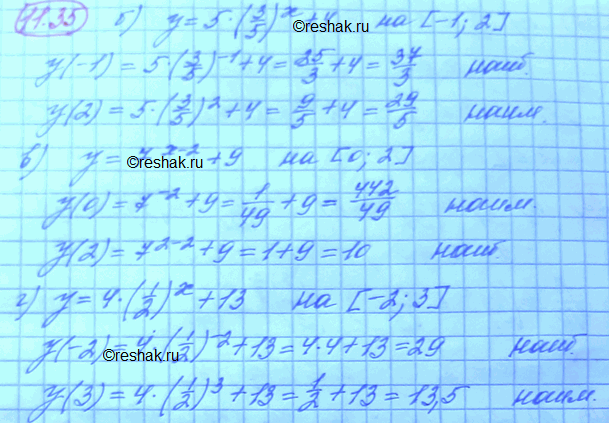 11.35 б) y = 5·(3/5)^x + 4 на [-1; 2]
©reshak.ru
y(-1) = 5·(3/5)^-1 + 4 = 25/3 + 4 = 37/3 наиб.
y(2) = 5·(3/5)^2 + 4 = 9/5 + 4 = 29/5 наим.
в) y = 7^x-2 + 9 на [0; 2]
©reshak.ru
y(0) = 7^-2 + 9 = 1/49 + 9 = 442/49 наим.
y(2) = 7^2-2 + 9 = 1 + 9 = 10 наиб.
г) y = 4·(1/2)^x + 13 на [-2; 3]
y(-2) = 4·(1/2)^-2 + 13 = 4·4 + 13 = 29 наиб.
©reshak.ru
y(3) = 4·(1/2)^3 + 13 = 1/2 + 13 = 13,5 наим.